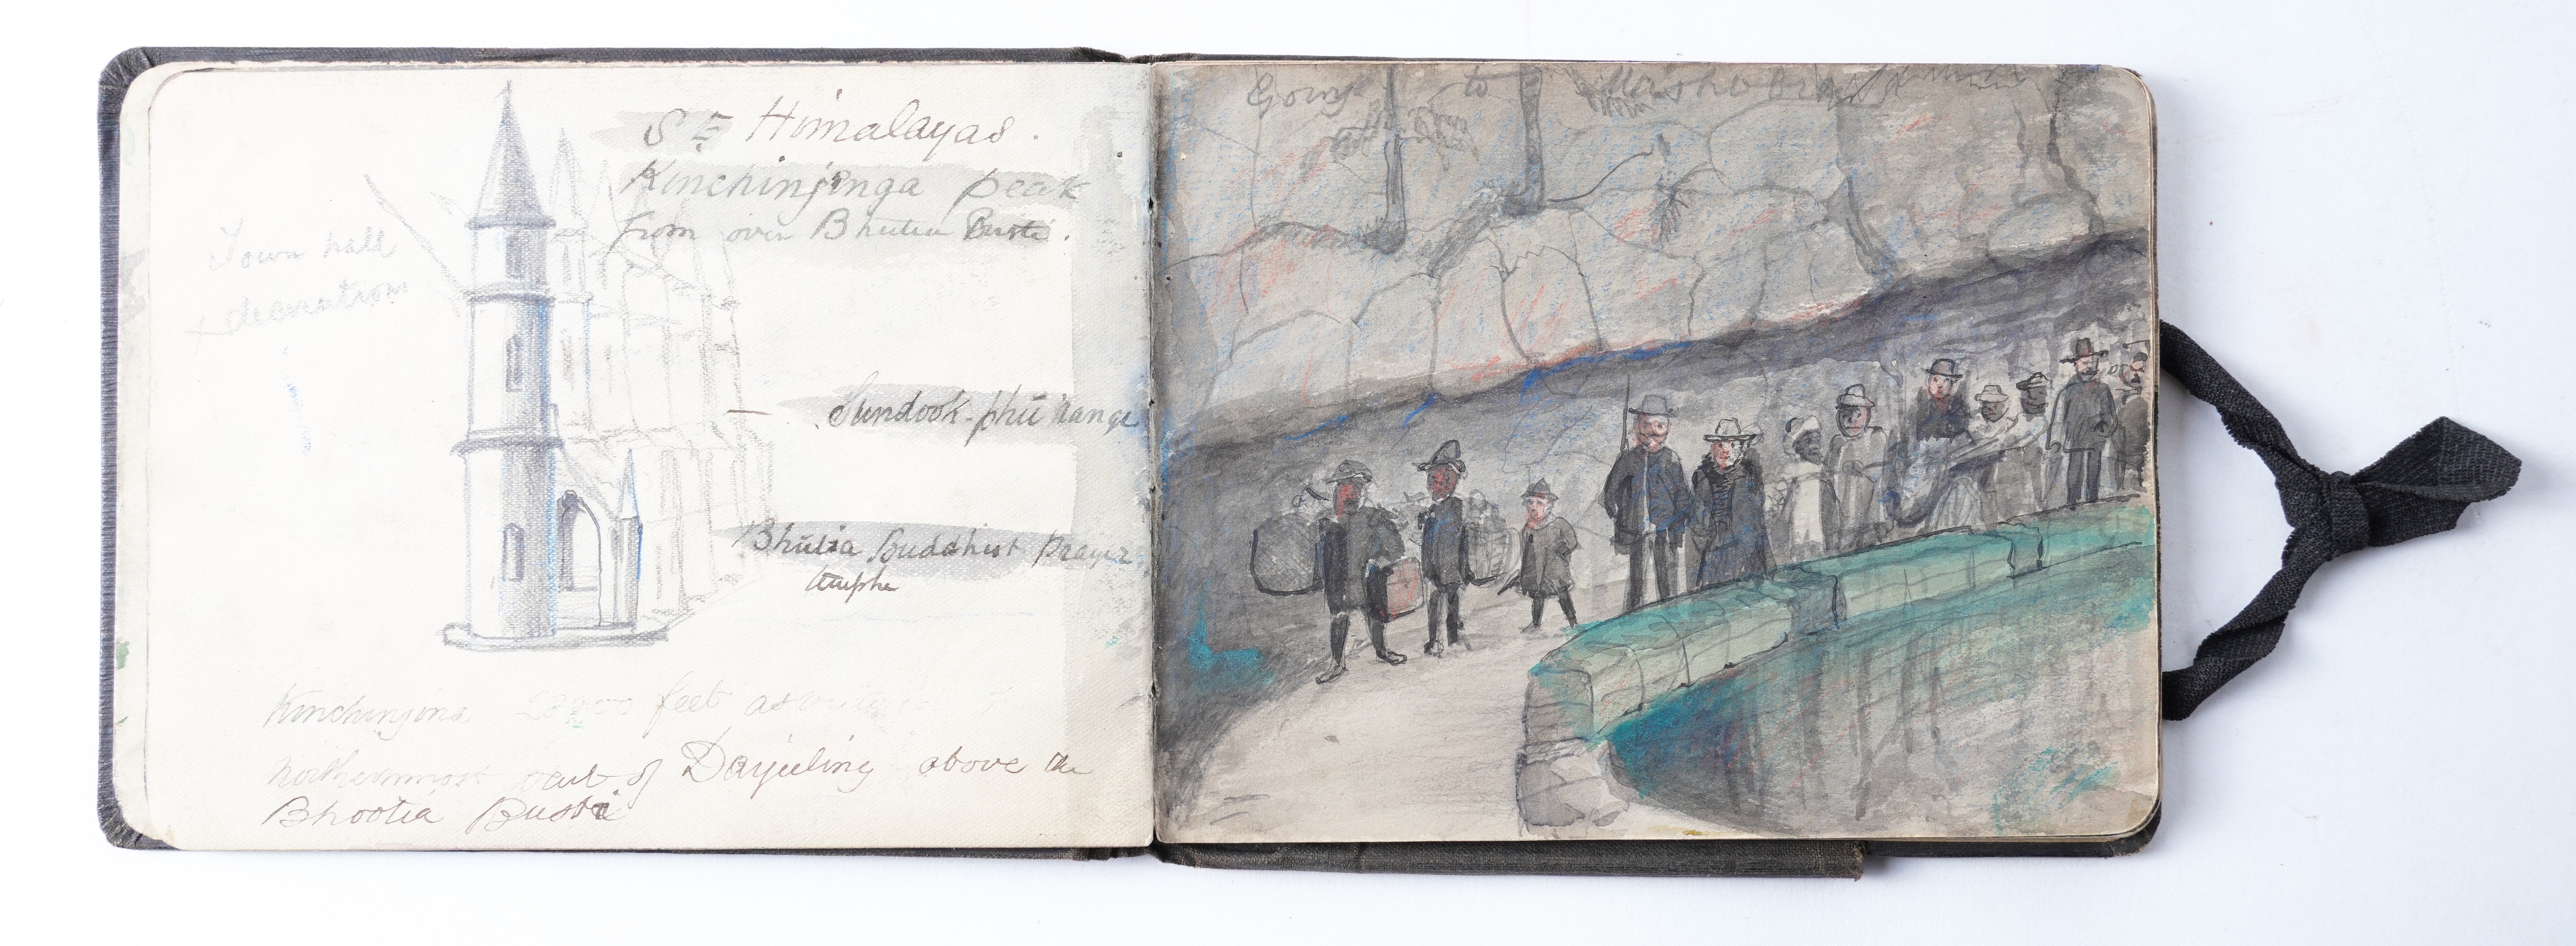 S E Himalayas.
Kinchinjinga peak
from over Bhutia Busti.
Town hall
decoration
Sundook-phū range
Bhūtia Buddhist prayer
Kinchinjona 28000 feet as
northernmost out of Darjeeling above the
Bhootia Busti
Going to